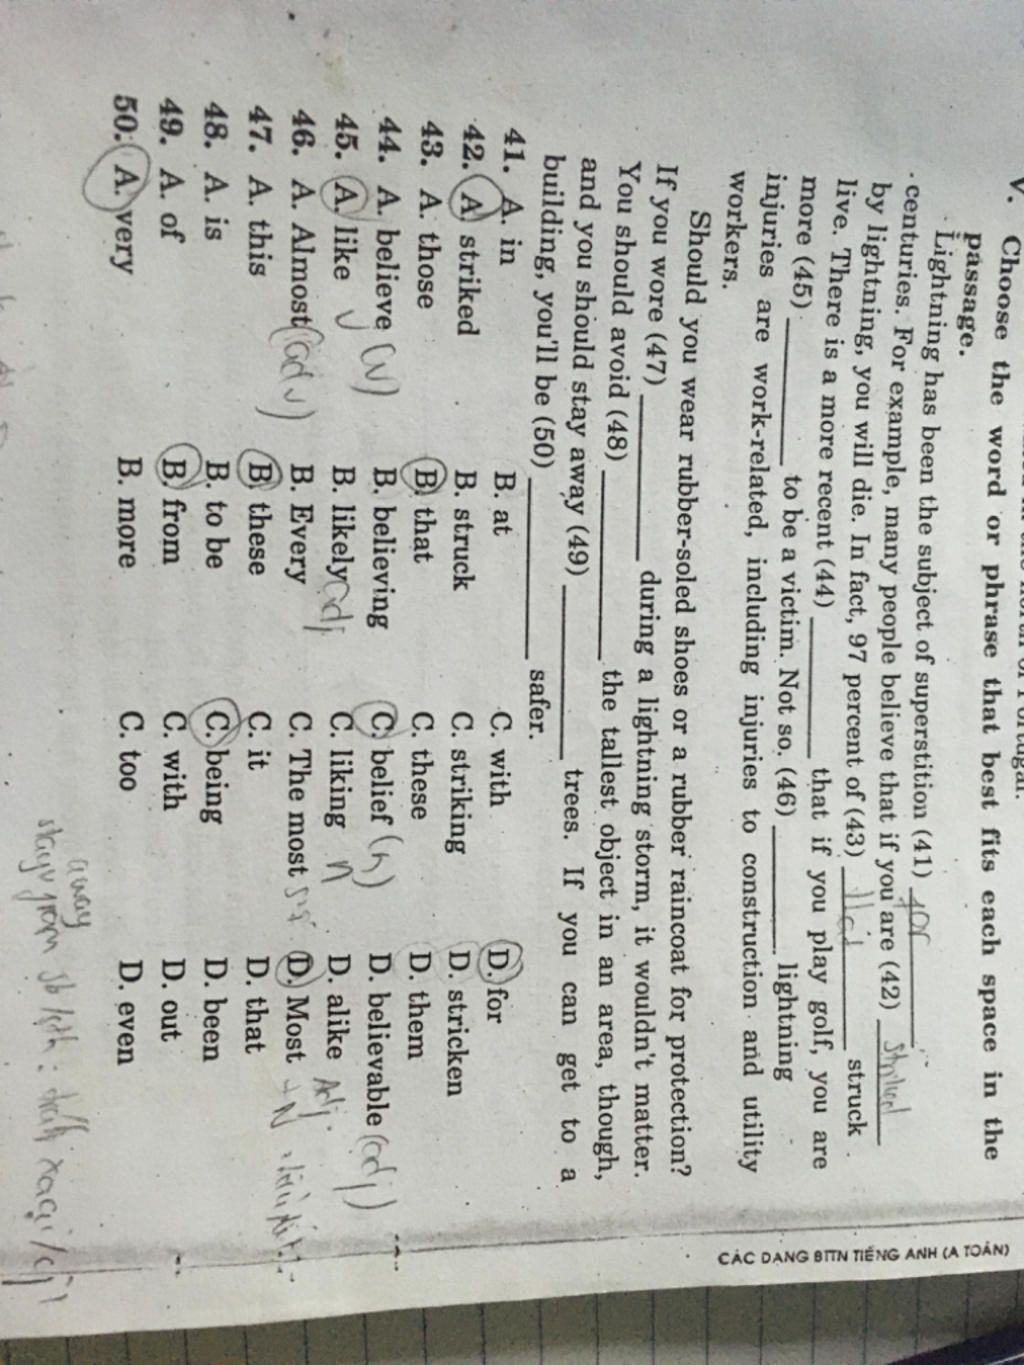 V. Choose the word or phrase that best fits each space in the
passage.
Lightning has been the subject of superstition (41) for
centuries. For example, many people believe that if you are (42) striked
by lightning, you will die. In fact, 97 percent of (43) struck
live. There is a more recent (44) that if you play golf, you are
more (45) to be a victim. Not so. (46) lightning
injuries are work-related, including injuries to construction and utility
workers.
Should you wear rubber-soled shoes or a rubber raincoat for protection?
If you wore (47) during a lightning storm, it wouldn't matter.
You should avoid (48) the tallest object in an area, though,
and you should stay away (49) trees. If you can get to a
building, you'll be (50) safer.
41. A. in B. at C. with D. for
42. A. striked B. struck C. striking D. stricken
43. A. those B. that C. these D. them
44. A. believe (v) B. believing C. belief (n) D. believable (adj)
45. A. like v B. likely adj C. liking n D. alike Adj
46. A. Almost (adv) B. Every C. The most D. Most + N
47. A. this B. these C. it D. that
48. A. is B. to be C. being D. been
49. A. of B. from C. with D. out
50. A. very B. more C. too D. even
away
CÁC DẠNG BTTN TIẾNG ANH (A TOÁN)